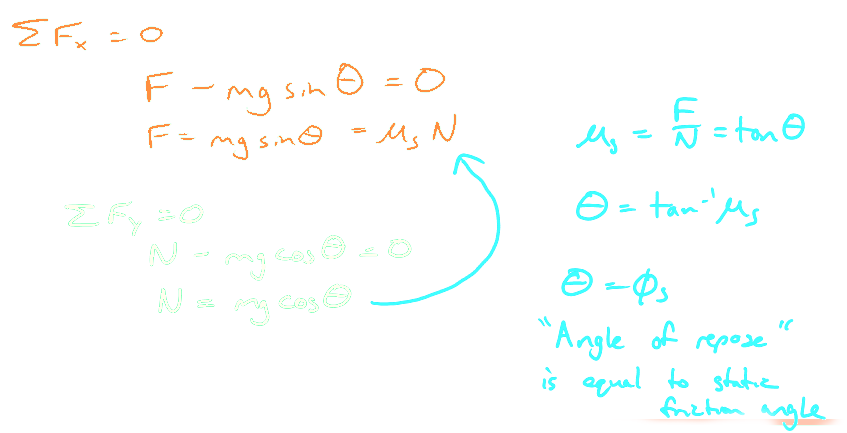 ΣFₓ = 0
F - mg sin θ = 0
F = mg sin θ = μₛ N
ΣFᵧ = 0
N - mg cos θ = 0
N = mg cos θ
μₛ = F/N = tan θ
θ = tan⁻¹ μₛ
θ = ϕₛ
"Angle of repose"
is equal to static
friction angle